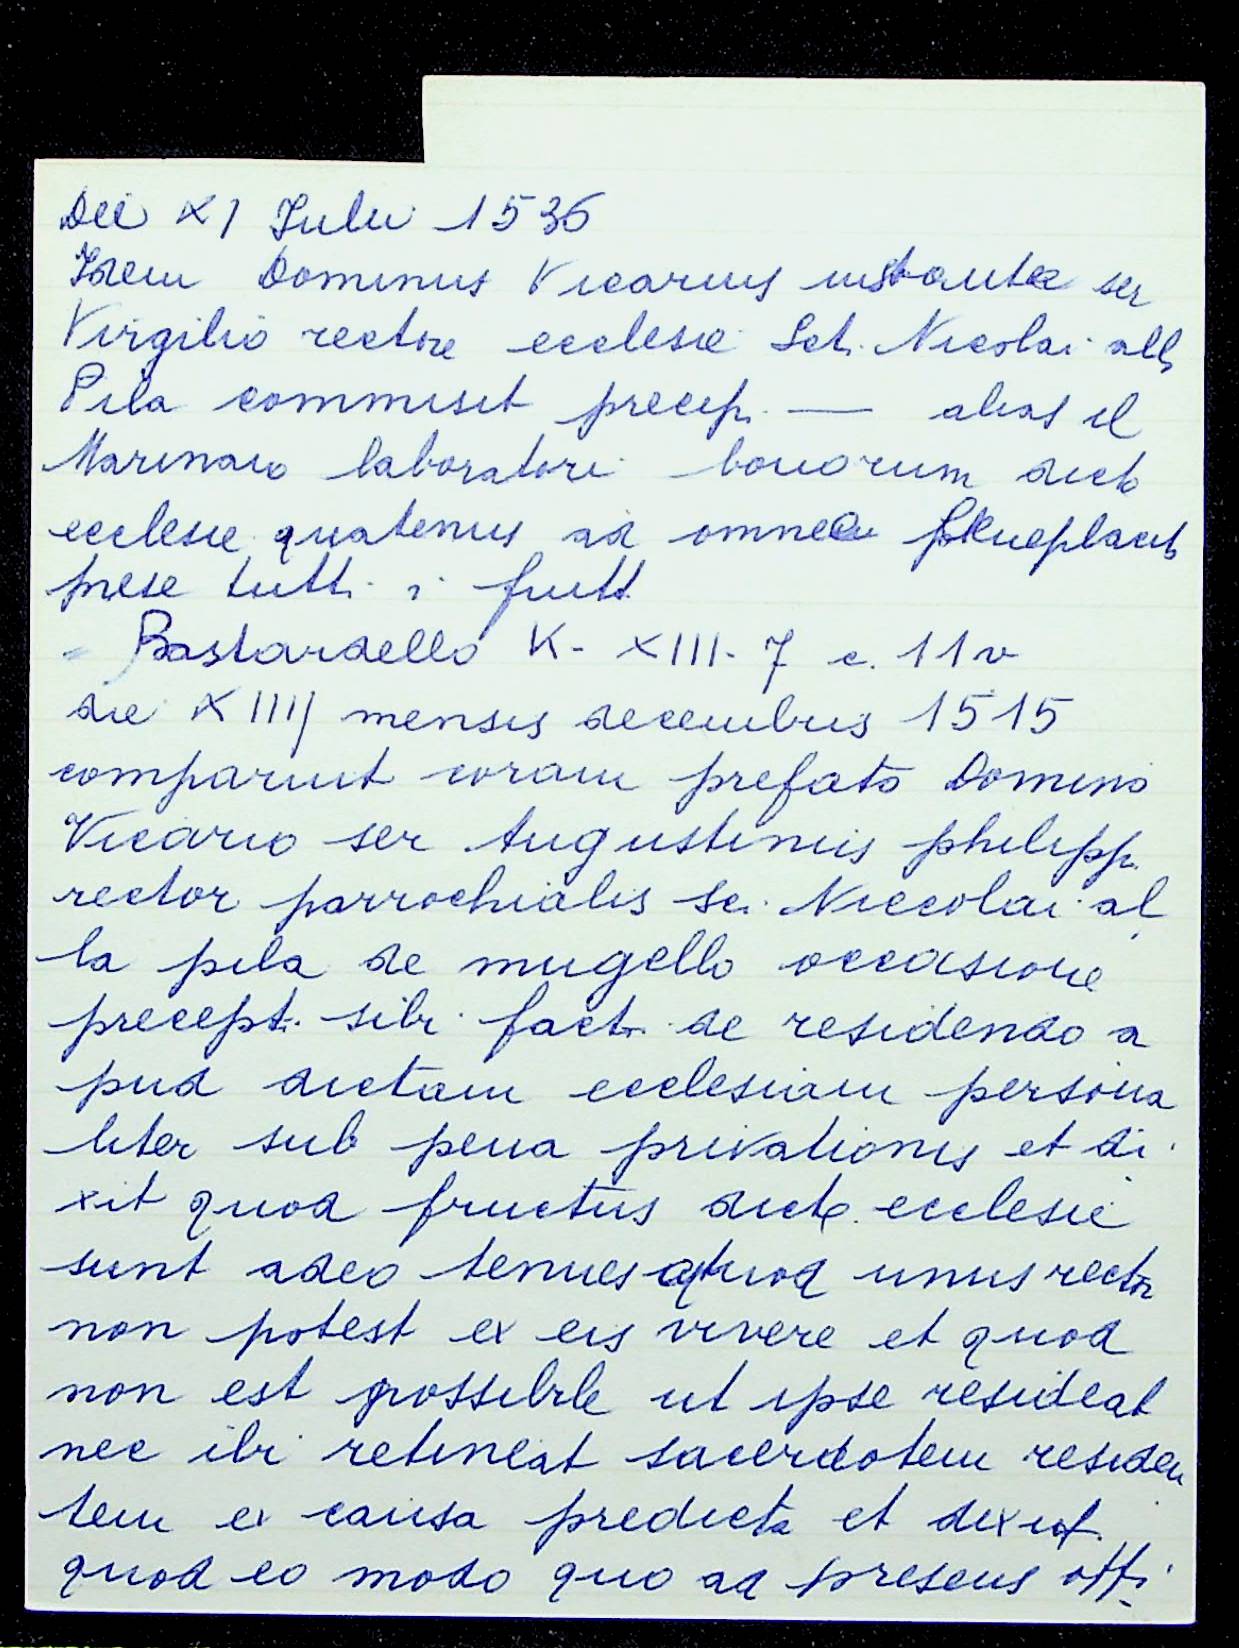 Die XI Iulii 1536
Idem Dominus Vicarius instante ser
Virgilio rectore ecclesie Sct. Nicolai all
Pila commisit precep. — alias il
Marinaio laboratori bonorum dicte
ecclesie quatenus ad omnem
prese tutti i frutti
- Bastardello K- XIII- 7 c. 11v
die XIIII mensis decembris 1515
comparuit coram prefato Domino
Vicario ser Augustinus philipp.
rector parrochialis sci. Niccolai al
la pila de mugello occasione
precept. sibi fact. de residendo a
pud dictam ecclesiam persona
liter sub pena privationis et di
xit quod fructus dicte ecclesie
sunt adeo tenues quod unus rector
non potest ex eis vivere et quod
non est possibile ut ipse resideat
nec ibi retineat sacerdotem residen
tem ex causa predicta et dixit
quod eo modo quo ad presens offi